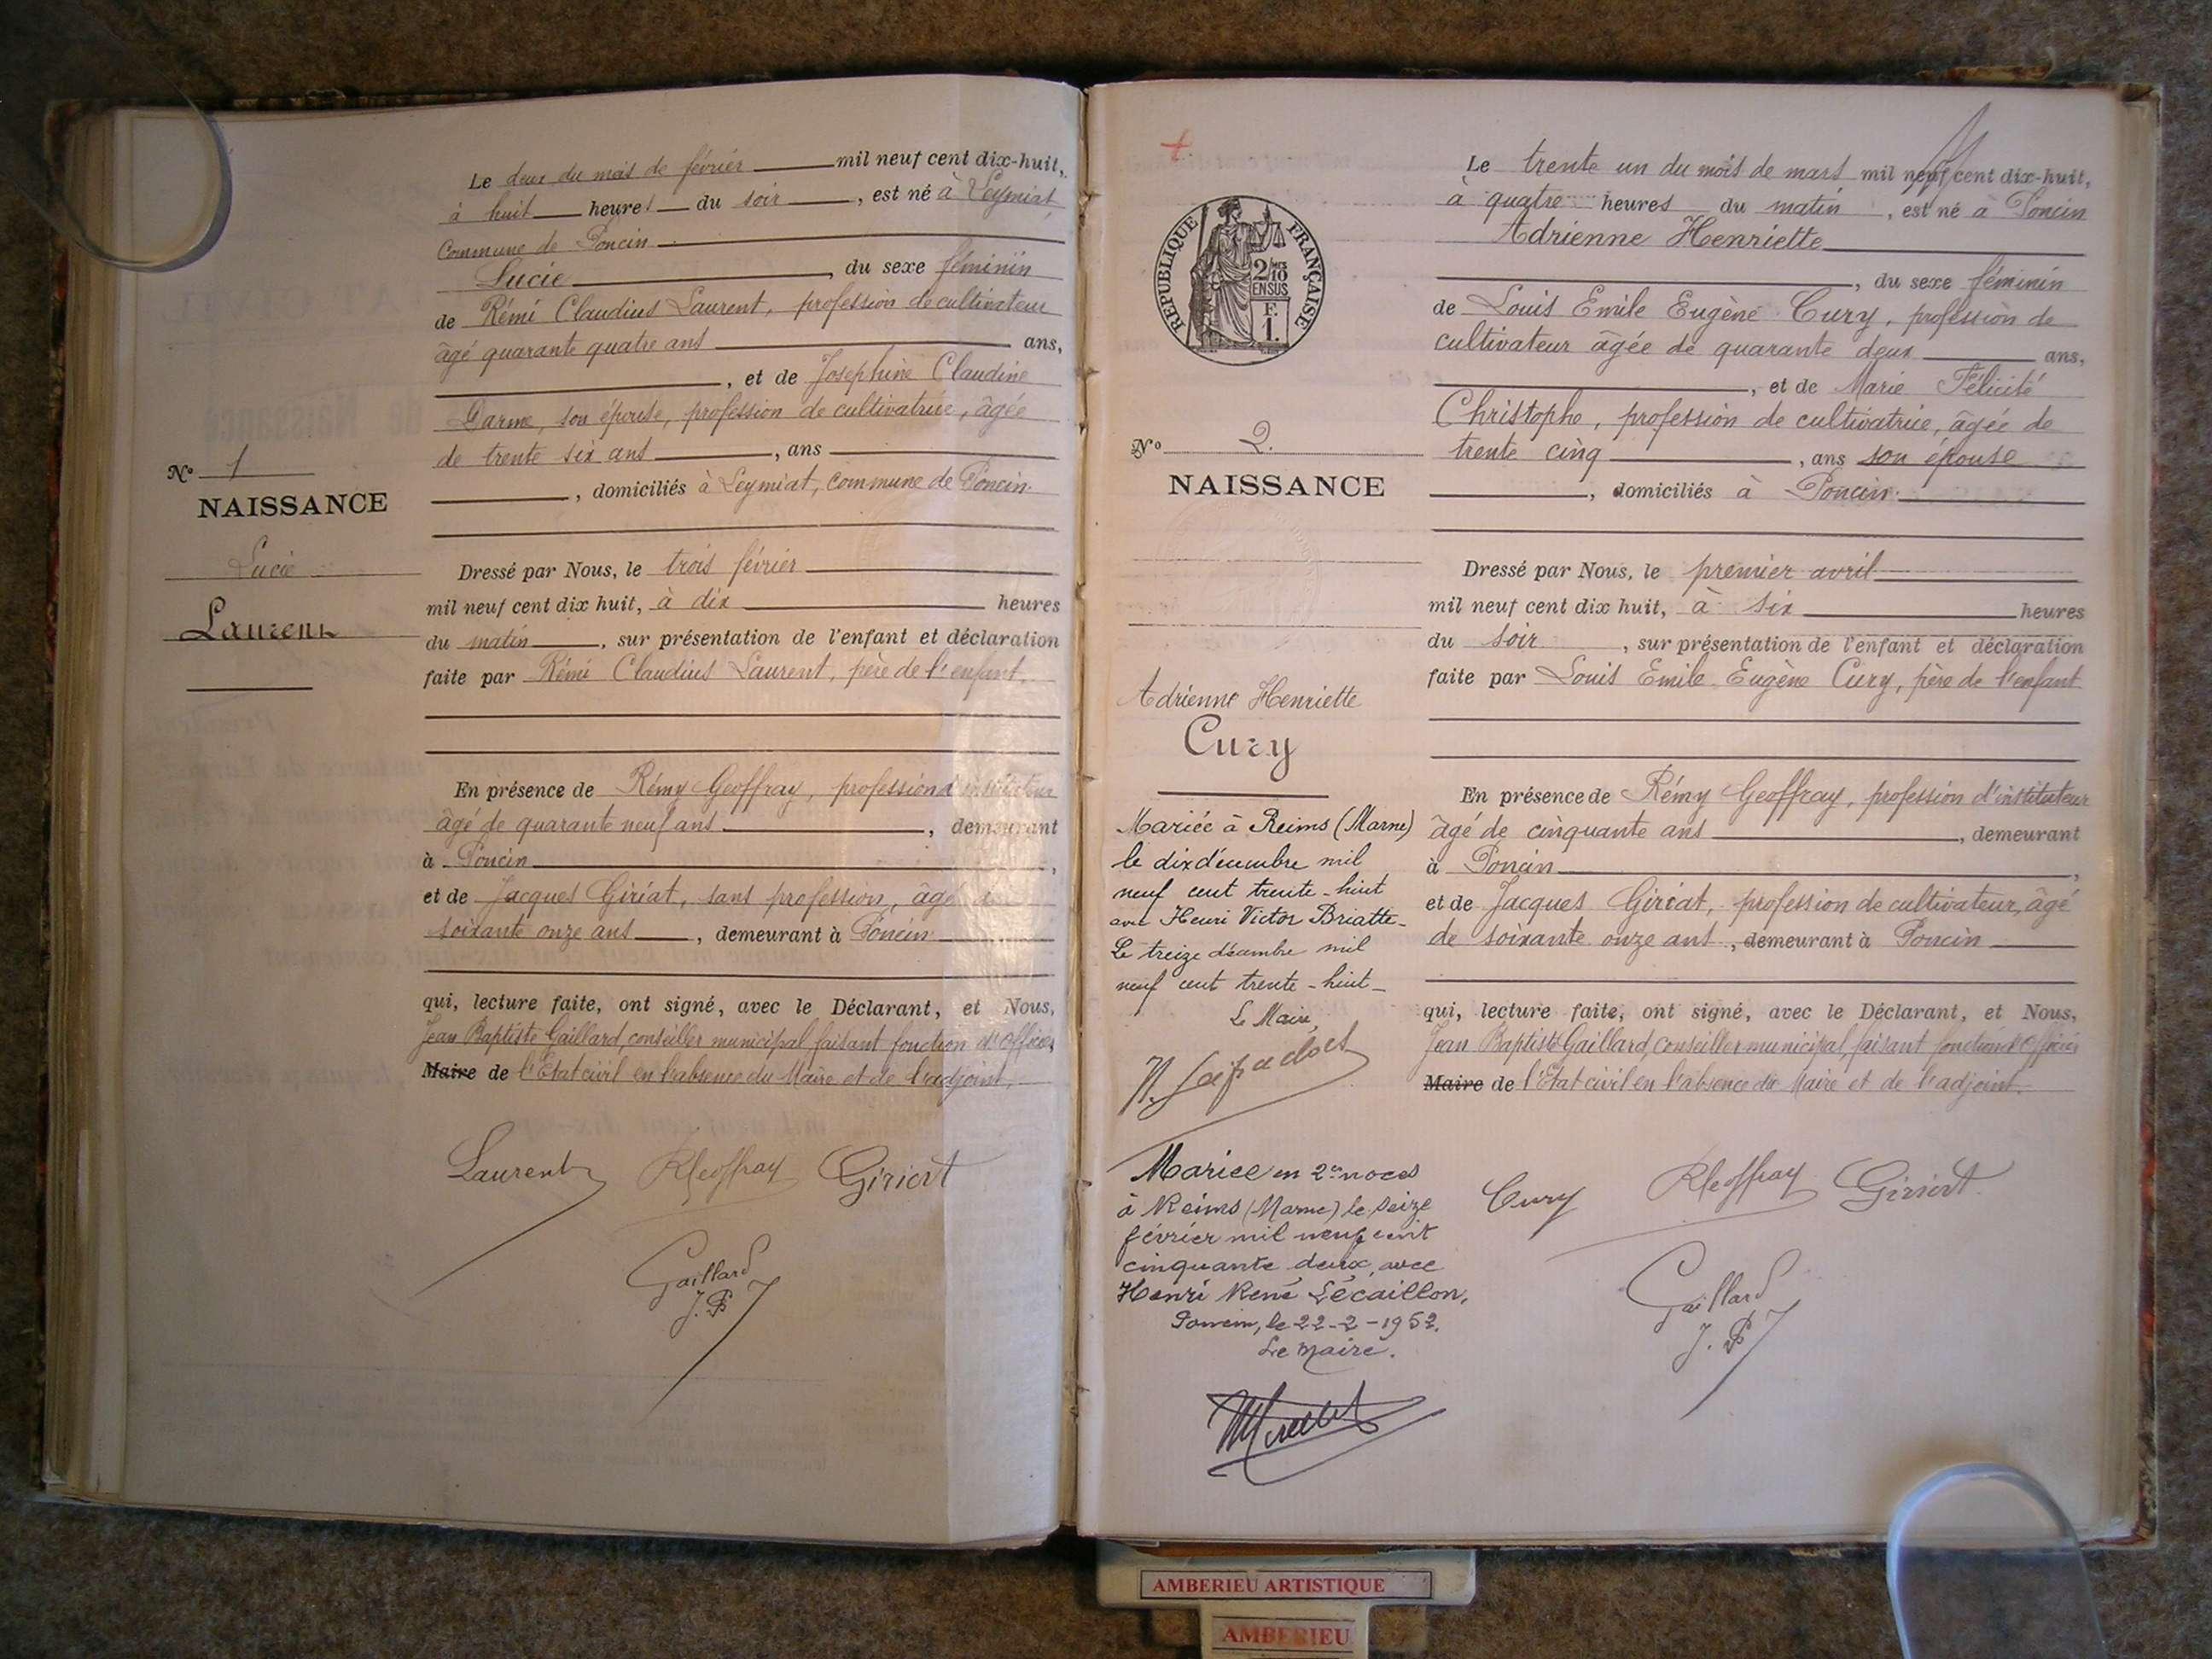 Le deux du mois de février mil neuf cent dix-huit,
à huit heures du soir, est né à Leymiat
Commune de Poncin
Lucie, du sexe féminin
de Rémi Claudius Laurent, profession de cultivateur
âgé quarante quatre ans ans,
, et de Josephine Claudine
Garme, son épouse, profession de cultivatrice, âgée
de trente six ans, ans
, domiciliés à Leymiat, commune de Poncin.
Dressé par Nous, le trois février
mil neuf cent dix huit, à dix heures
du matin, sur présentation de l'enfant et déclaration
faite par Rémi Claudius Laurent, père de l'enfant,
En présence de Rémy Geoffray, profession d'instituteur
âgé de quarante neuf ans, demeurant
à Poncin,
et de Jacques Giriat, sans profession, âgé de
soixante onze ans, demeurant à Poncin
qui, lecture faite, ont signé, avec le Déclarant, et Nous,
Jean Baptiste Gaillard, conseiller municipal faisant fonction d'Officier
Maire de l'Etat civil en l'absence du Maire et de l'adjoint,
Laurent RGeoffray Giriat
Gaillard
J.B
No 1
NAISSANCE
Lucie
Laurent
RÉPUBLIQUE FRANÇAISE
2/10
EN SUS
F.
1.
Le trente un du mois de mars mil neuf cent dix-huit,
à quatre heures du matin, est né à Poncin
Adrienne Henriette
, du sexe féminin
de Louis Emile Eugène Cury, profession de
cultivateur âgée de quarante deux ans,
, et de Marie Félicité
Christophe, profession de cultivatrice, âgée de
trente cinq, ans son épouse
, domiciliés à Poncin.
Dressé par Nous, le premier avril
mil neuf cent dix huit, à six heures
du soir, sur présentation de l'enfant et déclaration
faite par Louis Emile Eugène Cury, père de l'enfant
En présence de Rémy Geoffray, profession d'instituteur
âgé de cinquante ans, demeurant
à Poncin,
et de Jacques Giriat, profession de cultivateur, âgé
de soixante onze ans, demeurant à Poncin
qui, lecture faite, ont signé, avec le Déclarant, et Nous,
Jean Baptiste Gaillard, conseiller municipal, faisant fonction d'Officier
Maire de l'Etat civil en l'absence du Maire et de l'adjoint.
Cury RGeoffray Giriat
Gaillard
J.B
No 2.
NAISSANCE
Adrienne Henriette
Cury
Mariée à Reims (Marne)
le dix décembre mil
neuf cent trente-huit
avec Henri Victor Briatte-
Le treize décembre mil
neuf cent trente-huit-
Le Maire,
Mariée en 2es noces
à Reims (Marne) le seize
février mil neuf cent
cinquante deux avec
Henri René Lécaillon,
Poncin, le 22-2-1952.
Le Maire.
AMBERIEU ARTISTIQUE
AMBERIEU